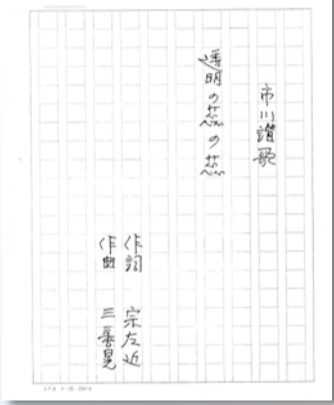 市川讃歌
透明の芯の芯
作詞 宗左近
作曲 三善晃